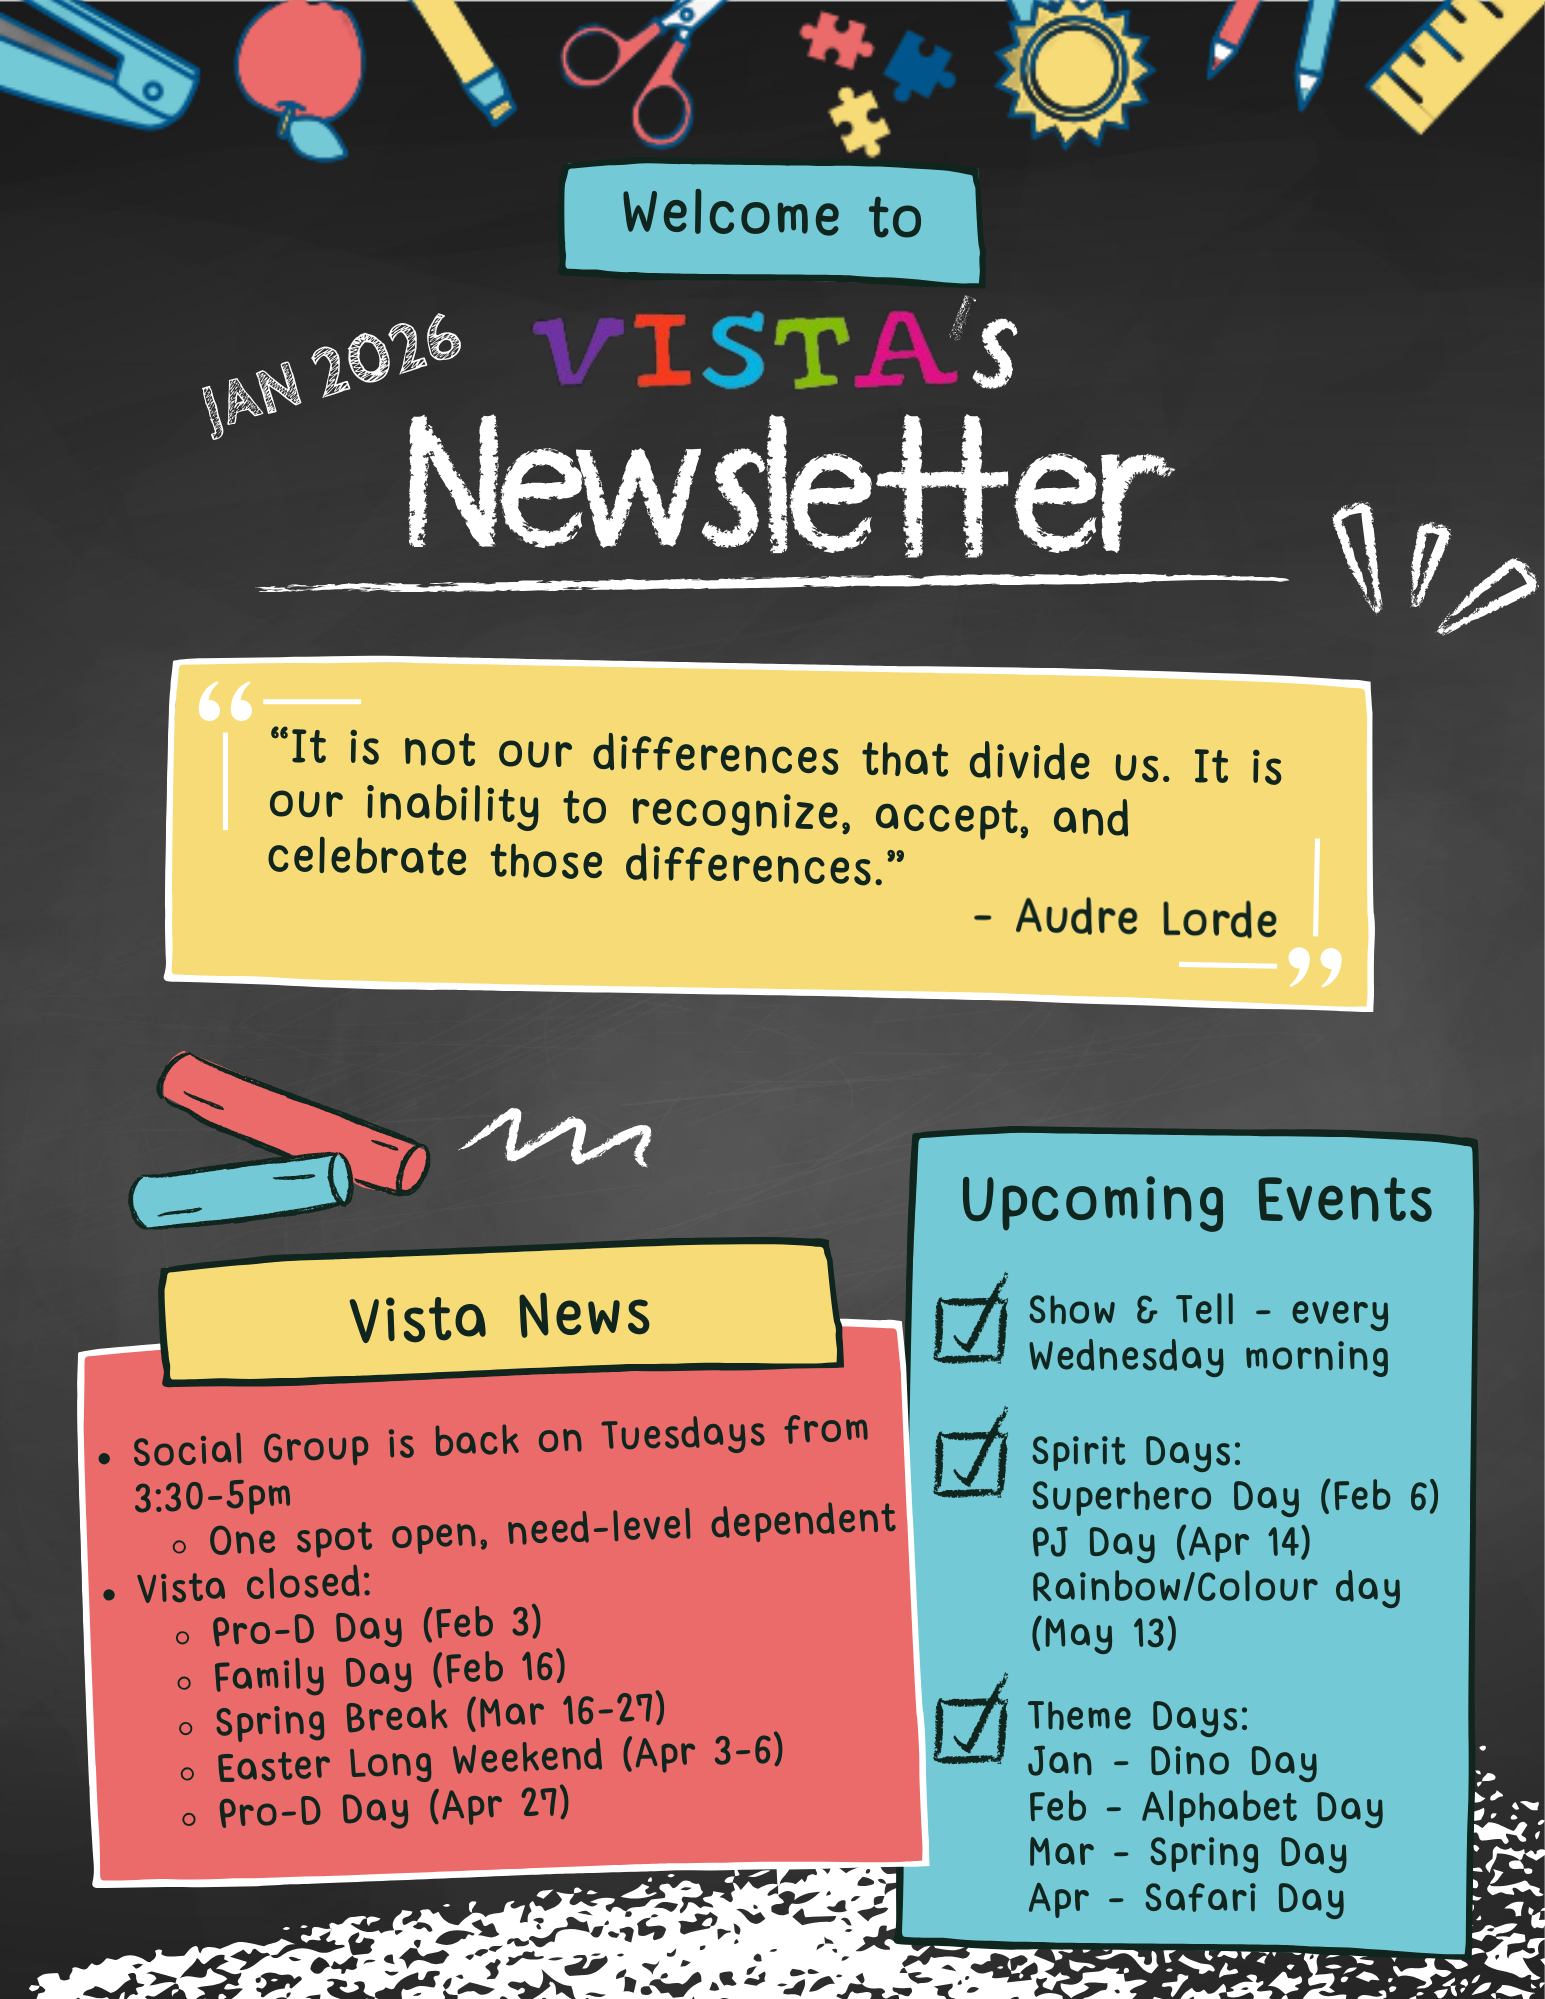 Welcome to
JAN 2026
VISTA's
Newsletter
“It is not our differences that divide us. It is
our inability to recognize, accept, and
celebrate those differences.”
- Audre Lorde
Upcoming Events
Show & Tell - every
Wednesday morning
Spirit Days:
Superhero Day (Feb 6)
PJ Day (Apr 14)
Rainbow/Colour day
(May 13)
Theme Days:
Jan - Dino Day
Feb - Alphabet Day
Mar - Spring Day
Apr - Safari Day
Vista News
• Social Group is back on Tuesdays from
3:30-5pm
○ One spot open, need-level dependent
• Vista closed:
○ Pro-D Day (Feb 3)
○ Family Day (Feb 16)
○ Spring Break (Mar 16-27)
○ Easter Long Weekend (Apr 3-6)
○ Pro-D Day (Apr 27)